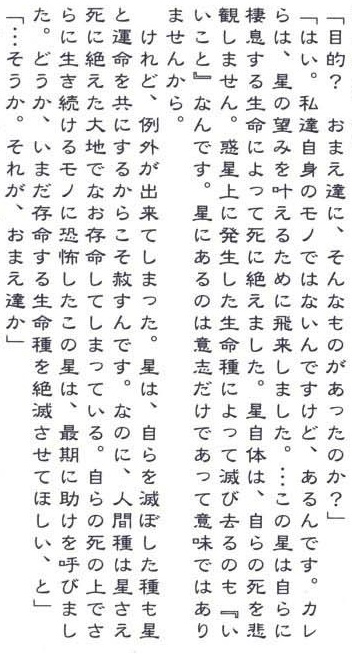 「目的？　おまえ達に、そんなものがあったのか？」
「はい。私達自身のモノではないんですけど、あるんです。カレ
らは、星の望みを叶えるために飛来しました。…この星は自らに
棲息する生命によって死に絶えました。星自体は、自らの死を悲
観しません。惑星上に発生した生命種によって滅び去るのも『い
いこと』なんです。星にあるのは意志だけであって意味ではあり
ませんから。
　けれど、例外が出来てしまった。星は、自らを滅ぼした種も星
と運命を共にするからこそ赦すんです。なのに、人間種は星さえ
死に絶えた大地でなお存命してしまっている。自らの死の上でさ
らに生き続けるモノに恐怖したこの星は、最期に助けを呼びまし
た。どうか、いまだ存命する生命種を絶滅させてほしい、と」
「…そうか。それが、おまえ達か」